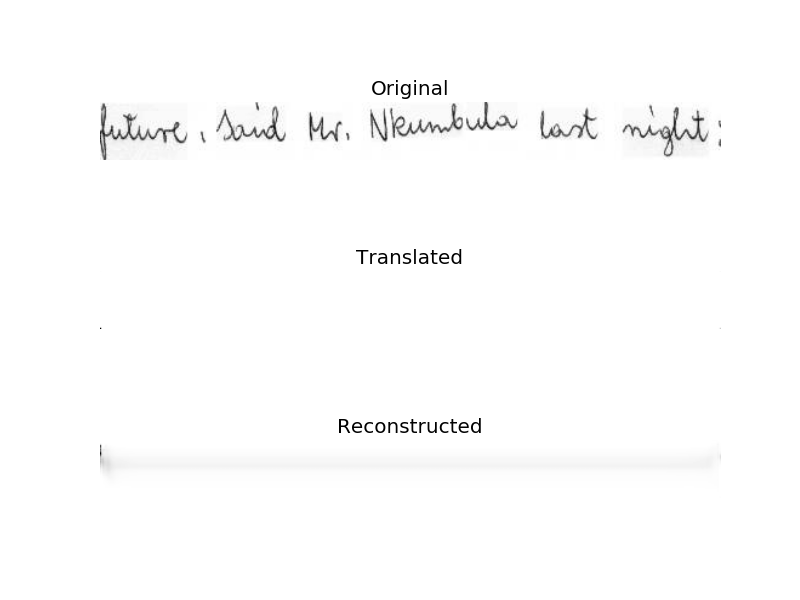 Original
future, said Mr. Nkumbula last night:
Translated
Reconstructed